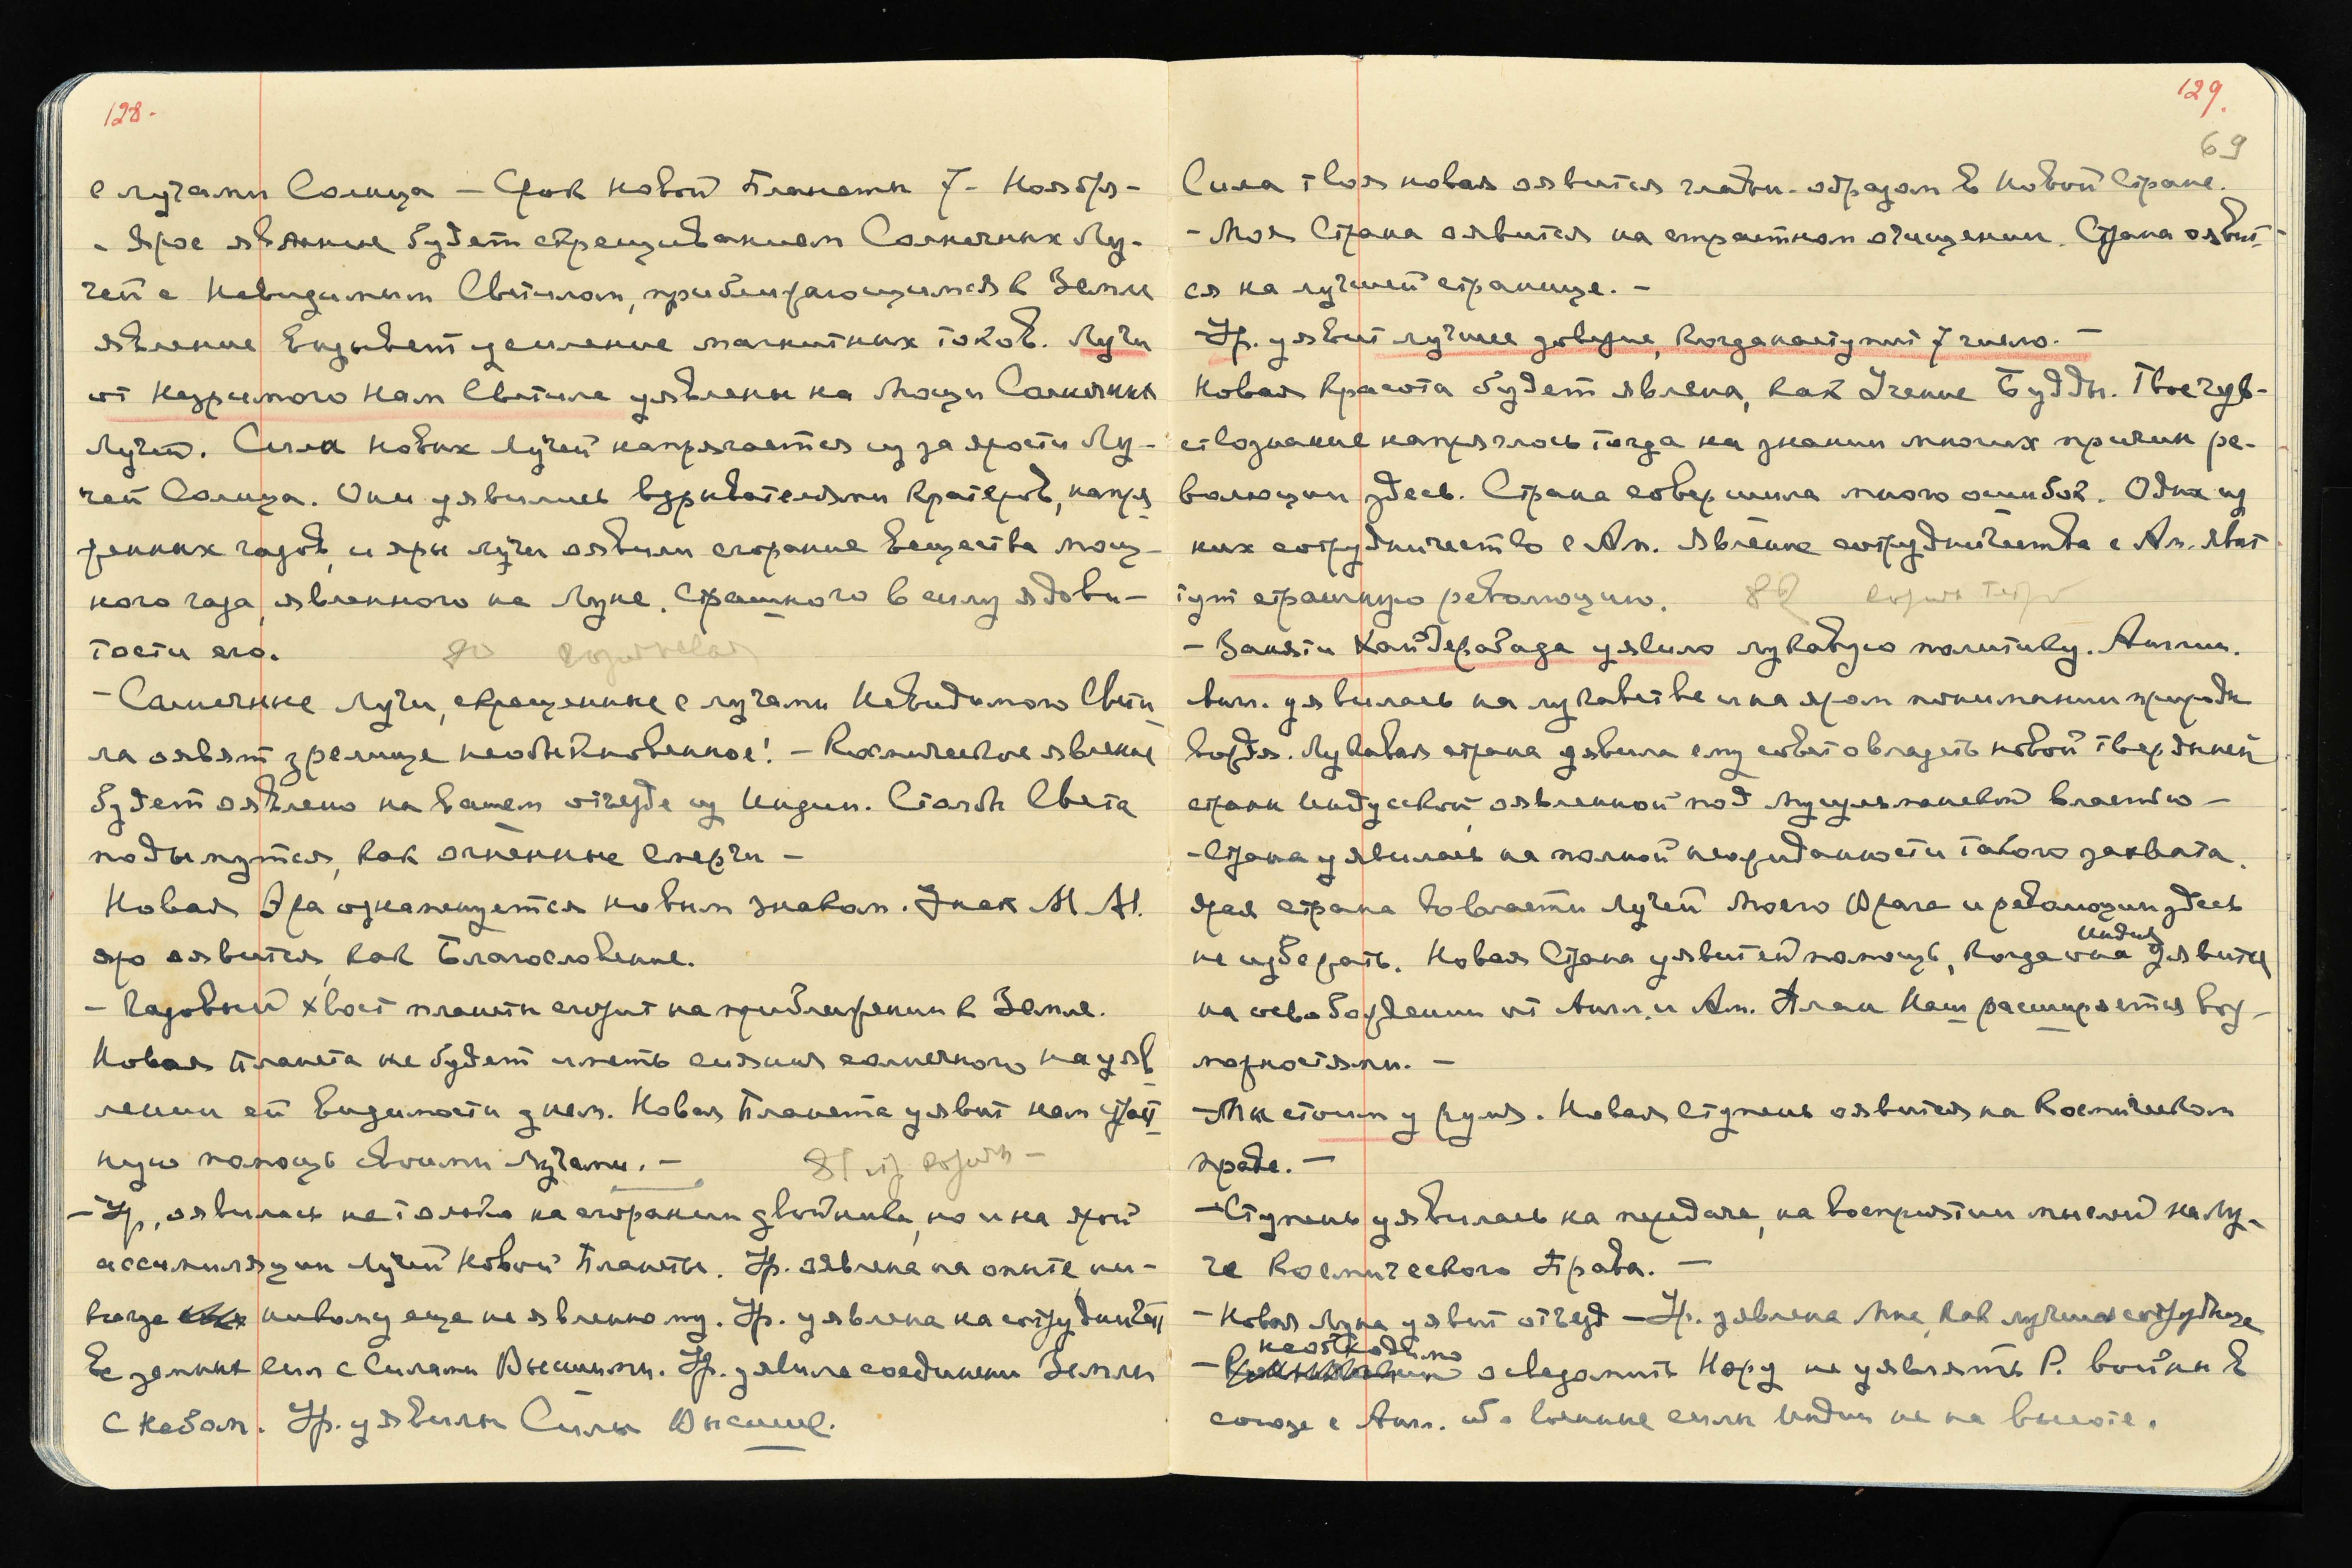 128.
с лучами Солнца — Срок новой Планеты 7- Ноября -
- Ярое явление будет скрещиванием Солнечных Лу-
чей с Невидимым Светилом, приближающимся к Земли
явление вызывает усиление магнитных токов. Лучи
от Незримого Нам Светила уявлены на Мощи Солнечных
Лучей. Сила новых Лучей напрягается из за ярости Лу-
чей Солнца. Они уявились взрывателями кратеров, напря
женных газов, и яры лучи оявили сгорание вещества мощ-
ного газа, явленного на Луне, страшного в силу ядови-
тости его.
- Солнечные Лучи, скрещенные с лучами Невидимого Свети
ла оявят зрелище необыкновенное! - Космическое явление
будет оявлено на вашем отъезде из Индии. Столбы Света
подымутся, как огненные смерчи -
Новая Эра ознаменуется новым знаком. Знак М. М.
яро оявится, как Благословение.
- Газовый хвост планеты сгорит на приближении к Земле.
Новая планета не будет иметь сияния солнечного на уяв
лении ей видимости днем. Новая Планета уявит нам
ную помощь своими Лучами. -
81
- Ур. оявилась не только на сгорании двойника, но и на ярой
ассимиляции Лучей Новой Планеты. Ур. оявлена на опыте ни-
когда никому еще не явленному. Ур. уявлена на сотрудничест
ве земных сил с Силами Высшими. Ур. уявила соединение Земли
с Небом. Ур. уявили Силы Высшие.
129.
69
Сила твоя новая оявится главн. образом в Новой Стране.
- Моя Страна оявится на страстном очищении. Страна оявит-
ся на лучшей странице. -
- Ур. уявит лучшее доверие, когда наступит 7 число. -
Новая Красота будет явлена, как Учение Будды. Твое чув-
ствознание напряглось тогда на знании многих причин ре-
волюции здесь. Страна совершила много ошибок. Одна из
них сотрудничество с Ам. Явление сотрудничества с Ам. явит
тут страшную революцию.
- Занятие Хайдерабада уявило лукавую политику. Англии.
Англ. уявилась на лукавстве и на яром понимании природы
вождя. Лукавая страна уявила ему совет овладеть новой твердыней
страны Индусской, оявленной под мусульманской властью -
- Страна уявилась на полной неожиданности такого захвата.
Ярая страна во власти Лучей Моего Врага и революции здесь
не избежать. Новая Страна уявит ей помощь, когда она Индия уявится
на освобождении от Англ. и Ам. План Наш расширяется воз-
можностями. -
- Мы стоим у руля. Новая ступень оявится на Космическом
праве. -
- Ступень уявилась на передаче, на восприятии мыслей на Лу-
че Космического Права. -
- Новая Луна уявит отъезд - Ур. уявлена Мне, как лучшая сотрудница
- необходимо осведомить Нору не уявлять Р. войны в
союзе с Англ. ибо военные силы Индии не на высоте.